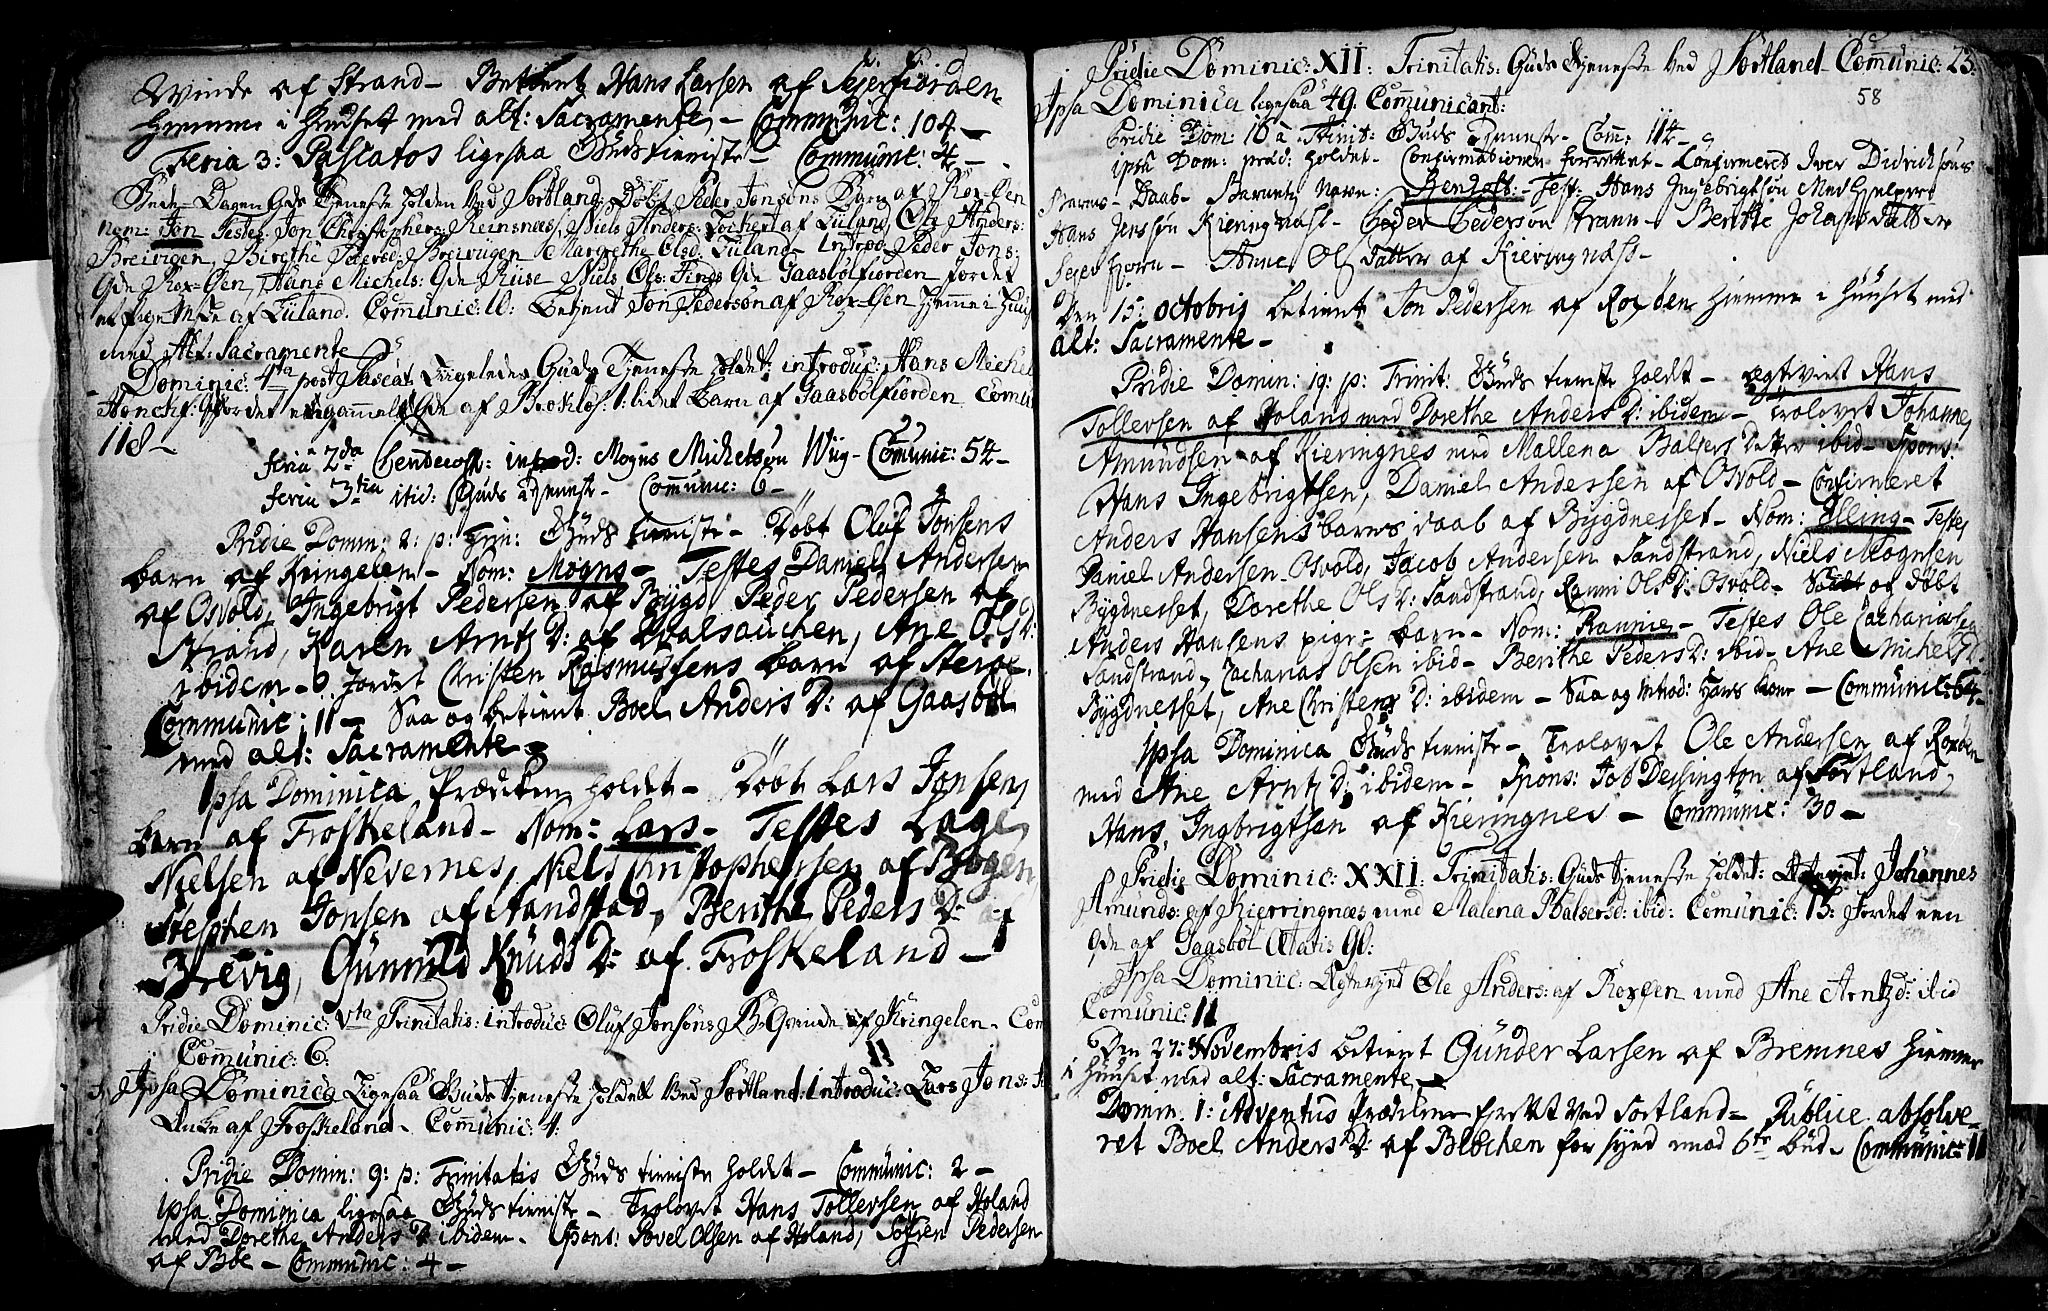 Qvinde af Strand – Betient Hans Larsen af Sejerfiorden
hiemme i Huuset med alt: Sacramente – Communic: 104 –
Feria 3: Paschatos ligesaa Guds tieniste – Communic: 4 –
Bede-Dagen Guds Tjeneste holden Ved Sortland, Døbt Peder Jonsøns Barn af Rox-Øen
Nom: Jon Testes Jon Christophers: Reinsnæs, Niels Anders: Lockert af Luland, Ole Anders:
Breivigen, Birethe Pedersd: Breivigen Margrethe Olsd: Luland – Introd: Peder Jons:
Qde Rox-Øen, Hans Michels: Qde Niels Ols: Qde Gaasbølfiorden Jordet
af Luland. Communic: 10: Betjent Jon Pedersøn af Rox-Øen hjemme i Huus
med Alt: Sacramente
Dominic: 4ta post Pascat. Ligeledes Guds Tjeneste holdet: introduc: Hans Michel
Jordet en gammel Qde af Brokløs: 1: lidet Barn af Gaasbølfiorden Comun
118 –
feria 2da Pentecost: introd: Mogns Michelsøn Wiig – Comunic: 54 –
feria 3tia itid: Guds tienest – Communic: 6 –
Pridie Domin: 2: p: Trin: Guds tieniste – Døbt Oluf Jonsens
barn af Kringelen – Nom: Mogns – Testes Daniel Andersen
af Osvold, Ingebrigt Pedersen af Bygd Peder Pedersen af
Strand, Karen Arntz D: af Hvalsauchen, Ane Ols D:
ibidem – Jordet Christen Rasmussens barn af Sterpe
Communic: 11 – Saa og betient Boel Anders D: af Gaasbøl
med alt: Sacramente –
Ipsa Dominica Prædiken holdt – Døbt Lars Jonsens
barn af Froskeland – Nom: Lars – Testes Lage
Nielsen af Nevernes, Niels Christophersen af Bogen
Stephen Jonsen af Sandstad, Berithe Peders D: af
Brevig, Gunnild Knuds D: af Froskeland –
Pridie Dominic: Vta Trinitatis: introduc: Oluf Jonsøns Qvinde af Kringelen – Com
Comunic: 6:
Ipsa Dominica Ligesaa Guds tjeneste holdet Ved Sortland: Introduc: Lars Jons:
af Froskeland – Communic: 4:
Pridie Domin: 9: p: Trinitatis Guds tieniste holdt – Communic: 2 –
Ipsa Dominica ligesaa Guds tieniste – Trolovet Hans Tollersen af Holand
med Dorethe Anders D: ibidem – Spons: Povel Olsen af Holand, Søfren Pedersen
af Bøe – Communic: 4 –
Pridie Dominic: XII: Trinitatis: Guds Tjeneste Ved Sortland – Comunic: 23:
58
Ipsa Dominica ligesaa 49. Communicant:
Pridie Dom: 16 a Trinit: Guds Tjeneste – Com: 114 –
Ipsa Dom: præd: holdet – Confirmationen forrettet – Confirmeret Iver Didrichsøns
Barns – Daab – Barnets Navn: Bendost: – Test: Hans Ingebrigtsøn Medhielpere
Hans Jenssøn Kieringnæss – Peder Pedersøn Strann – Beritte Johans Datter
Sejerfjorn – Anne Ols Datter af Kieringnæss –
Den 15: octobris betient Jon Pedersen af Roxøen hiemme i Huuset med
alt: Sacramente –
Pridie Domin: 19: p: Trinit: Guds tieniste holdt – egteviet Hans
Tollersen af Holand med Dorethe Anders D: ibidem – Trolovet Johannes
Amundsen af Kieringnes med Mallena Balsers Datter ibid – Spons:
Hans Ingebrigtsen, Daniel Andersen af Osvold – Confirmeret
Anders Hansens barns daab af Bygdnesset – Nom: Elling – Testes
Daniel Andersen Osvold, Jacob Andersen Sandstrand, Niels Mognsen
Bygdnesset, Dorethe Ols D: Sandstrand, Ranni Ols D: Osvold – Saa og døbt
Anders Hansens pige-barn – Nom: Rannie – Testes Ole Zachariasen
Sandstrand, Zacharias Olsen ibid – Berithe Peders D: ibid – Ane Michels D:
Bygdnesset, Ane Christens D: ibidem – Saa og introd: Hans kone – Communic: 64 –
Ipsa Dominica Guds tieniste – Trolovet Ole Andersen af Roxøen
med Ane Arntz D: ibidem – Spons: Job Dessington af Sortland,
Hans Ingbrigtsen af Kieringnes – Communic: 30 –
Pridie Dominic: XXII: Trinitatis: Guds tjeneste holdet: Ægteviet: Johannes
Amunds: af Kierringnæs med Malena Balsersd: ibid: Comunic: 13: Jordet een
Qde af Gaasbøl Ætatis 90:
Ipsa Dominic: Ægteviet Ole Anders: af Roxøen med Ane Arntzd: ibid
Comunic: 11
Den 27: Novembris betient Gunder Larsen af Bremnes hiemme
i Huuset med alt: Sacramente –
Domin. 1: Adventus Prædiken forrettet ved Sortland – Publice absolve-
ret Boel Anders D: af Blochen for synd mod 6te bud – Communic: 11